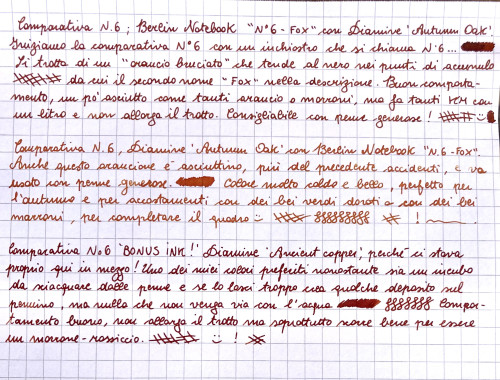 Comparativa N.6; Berlin Notebook "N°6 - Fox" con Diamine 'Autumn Oak'.
Iniziamo la comparativa N°6 con un inchiostro che si chiama N°6...
Si tratta di un "arancio bruciato" che tende al nero nei punti di accumulo
da cui il secondo nome "Fox" nella descrizione. Buon comporta-
mento, un po' asciutto come tanti arancio o marroni, ma fa tanti km con
un litro e non allarga il tratto. Consigliabile con penne generose!
Comparativa N.6, Diamine 'Autumn Oak' con Berlin Notebook "N.6-Fox".
Anche questo arancione è asciuttino, più del precedente accidenti, e va
usato con penne generose. Colore molto caldo e bello, perfetto per
l'autunno e per accostamenti con dei bei verdi dorati o con dei bei
marroni, per completare il quadro :) !
Comparativa No6 'BONUS INK!' Diamine 'Ancient copper', perché ci stava
proprio qui in mezzo! Uno dei miei colori preferiti nonostante sia un incubo
da sciacquare dalle penne e se lo lasci troppo crea qualche deposito sul
pennino, ma nulla che non venga via con l'acqua Compor-
tamento buono, non allarga il tratto ma soprattutto scorre bene per essere
un marrone-rossiccio. :) !